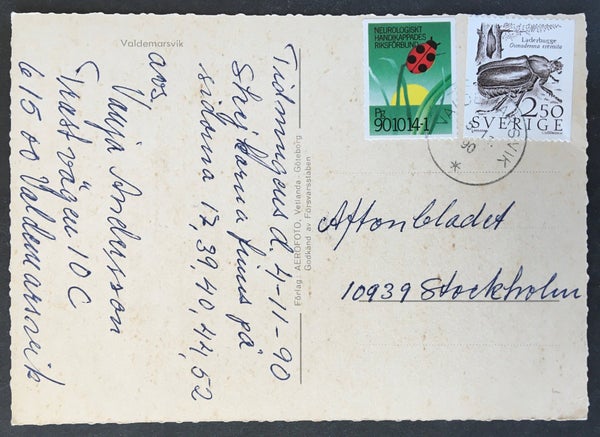 Valdemarsvik
Tidningens d. 4-11-90
finns på
sidorna 17, 39, 40, 44, 52
avs.
Vanja Andersson
Trastvägen 10 C
615 00 Valdemarsvik
Förlag: AEROFOTO, Vetlanda, Göteborg
Godkänd av Försvarsstaben
NEUROLOGISKT
HANDIKAPPADES
RIKSFÖRBUND
Pg
901014-1
Läderbagge
Osmoderma eremita
2.50
SVERIGE
Aftonbladet
10939 Stockholm